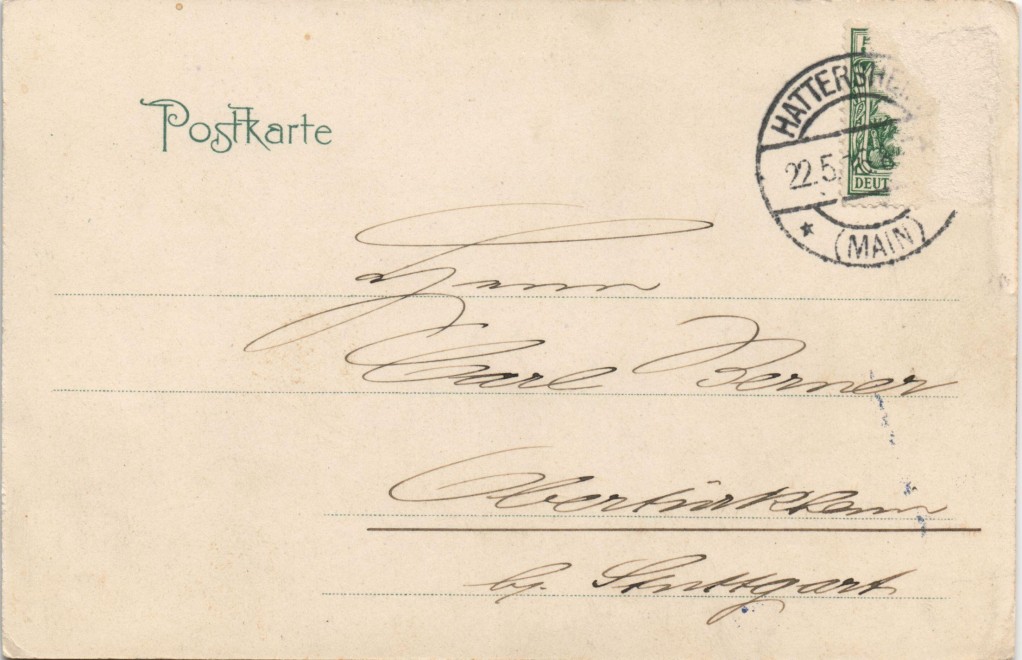 Postkarte
HATTERSHE
22.5.
DEUT
(MAIN)
Herrn
Carl Berner
Obertürkheim
bg. Stuttgart